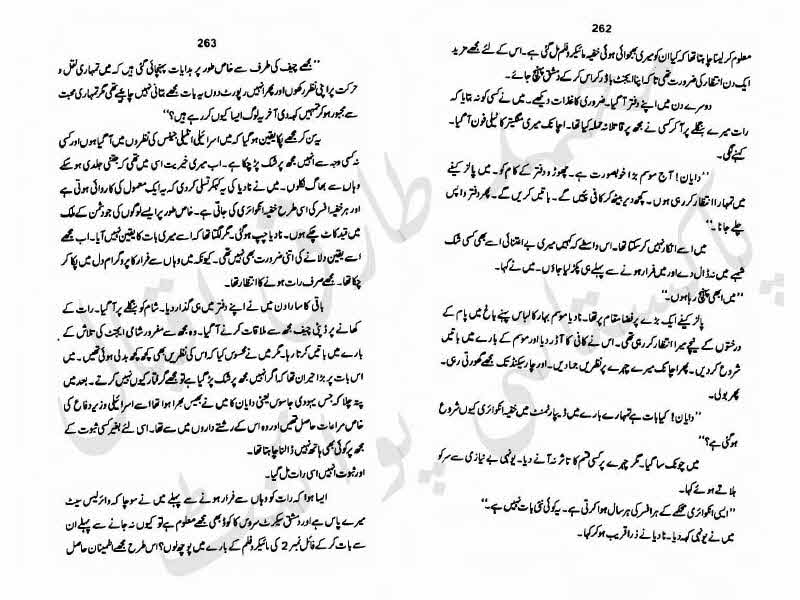 262
معلوم کر لینا چاہتا تھا کہ کیا ان کو میری بھجوائی ہوئی خفیہ مائیکروفلم مل گئی ہے۔ اس کے لئے مجھے مزید
ایک دن انتظار کی ضرورت تھی تاکہ اپنا ایجنٹ ہاورڈ کراس کر کے دمشق پہنچ جائے۔
دوسرے دن میں اپنے دفتر آ گیا۔ ضروری کاغذات دیکھے۔ میں نے کسی کو نہ بتایا کہ
رات میرے بنگلے پر آ کر کسی نے مجھ پر قاتلانہ حملہ کیا تھا۔ اچانک میری منگیتر کا ٹیلی فون آ گیا۔
کہنے لگی۔
''دایان! آج موسم بڑا خوبصورت ہے۔ چھوڑو دفتر کے کام کو۔ میں پالز کیفے
میں تمہارا انتظار کر رہی ہوں۔ کچھ دیر بیٹھ کر کافی پئیں گے۔ باتیں کریں گے۔ پھر دفتر واپس
چلے جانا۔''
میں اسے انکار نہیں کر سکتا تھا۔ اس واسطے کہ کہیں میری بے اعتنائی اسے بھی کسی شک
شبہے میں نہ ڈال دے اور میں فرار ہونے سے پہلے ہی پکڑ لیا جاؤں۔ میں نے کہا۔
''میں ابھی پہنچ رہا ہوں۔''
پالز کیفے ایک بڑے پر فضا مقام پر تھا۔ نادیا موسم بہار کا لباس پہنے باغ میں پام کے
درختوں کے نیچے میرا انتظار کر رہی تھی۔ اس نے کافی کا آڈر دیا اور موسم کے بارے میں باتیں
شروع کر دیں۔ پھر اچانک میرے چہرے پر نظریں جما دیں۔ اور چار سیکنڈ تک مجھے گھورتی رہی۔
پھر بولی۔
''دایان! کیا بات ہے تمہارے بارے میں ڈیپارٹمنٹ میں خفیہ انکوائری کیوں شروع
ہو گئی ہے؟''
میں چونک سا گیا۔ مگر چہرے پر کسی قسم کا تاثر نہ آنے دیا۔ یونہی بے نیازی سے سر کو
ہلاتے ہوئے کہا۔
''ایسی انکوائری محکمے کے ہر افسر کی ہر سال ہوا کرتی ہے۔ یہ کوئی نئی بات نہیں ہے۔''
میں نے یونہی کہہ دیا۔ نادیا نے ذرا قریب ہو کر کہا۔
263
''مجھے چیف کی طرف سے خاص طور پر ہدایات پہنچائی گئی ہیں کہ میں تمہاری نقل و
حرکت پر اپنی نظر رکھوں اور پھر انہیں رپورٹ دوں یہ بات مجھے بتانی نہیں چاہیے تھی مگر تمہاری محبت
سے مجبور ہو کر تمہیں کہہ دی آخر یہ لوگ ایسا کیوں کر رہے ہیں؟''
یہ سن کر مجھے پکا یقین ہو گیا کہ میں اسرائیلی انٹیلی جینس کی نظروں میں آ گیا ہوں اور کسی
نہ کسی وجہ سے انہیں مجھ پر شک پڑ چکا ہے۔ اب میری خیریت اسی میں تھی کہ جتنی جلدی ہو سکے
وہاں سے بھاگ نکلوں۔ میں نے نادیا کی یہ کہہ کر تسلی کر دی کہ یہ ایک معمول کی کاروائی ہوتی ہے
اور ہر خفیہ افسر کی اسی طرح خفیہ انکوائری کی جاتی ہے۔ خاص طور پر ایسے لوگوں کی جو دشمن کے ملک
میں قید کاٹ چکے ہوں۔ نادیا چپ ہو گئی۔ مگر لگتا تھا کہ اسے میری بات کا یقین نہیں آیا۔ اب مجھے
اسے یقین دلانے کی اتنی ضرورت بھی نہیں تھی۔ کیونکہ میں وہاں سے فرار کا پروگرام دل میں پکا کر
چکا تھا۔ مجھے صرف رات ہونے کا انتظار تھا۔
باقی کا سارا دن میں نے اپنے دفتر میں ہی گذار دیا۔ شام کو بنگلے پر آ گیا۔ رات کے
کھانے پر ڈپٹی چیف مجھ سے ملاقات کرنے آ گیا۔ وہ مجھ سے مفرور شامی ایجنٹ کی تلاش کے
بارے میں باتیں کرتا رہا۔ مگر میں نے محسوس کیا کہ اس کی نظریں بھی کچھ کچھ بدلی ہوئی تھیں۔ میں
اس بات پر بڑا حیران تھا کہ اگر انہیں مجھ پر شک پڑ گیا ہے تو مجھے گرفتار کیوں نہیں کرتے۔ بعد میں
پتہ چلا کہ جس یہودی جاسوس یعنی دایان کا میں نے بھیس بھرا ہوا تھا اسے اسرائیلی وزیر دفاع کی
خاص مراعات حاصل تھیں اور وہ اس کے رشتے داروں میں سے تھا۔ اسی لئے بغیر کسی ثبوت کے
مجھ پر کوئی بھی ہاتھ نہیں ڈالنا چاہتا تھا۔
اور ثبوت انہیں اسی رات مل گیا۔
ایسا ہوا کہ رات کو وہاں سے فرار ہونے سے پہلے میں نے سوچا کہ وائرلیس سیٹ
میرے پاس ہے اور دمشق سیکرٹ سروس کا کوڈ بھی مجھے معلوم ہے تو کیوں نہ جانے سے پہلے ان
سے بات کر کے فائل نمبر 2 کی مائیکروفلم کے بارے میں پوچھ لوں؟ اس طرح مجھے اطمینان حاصل